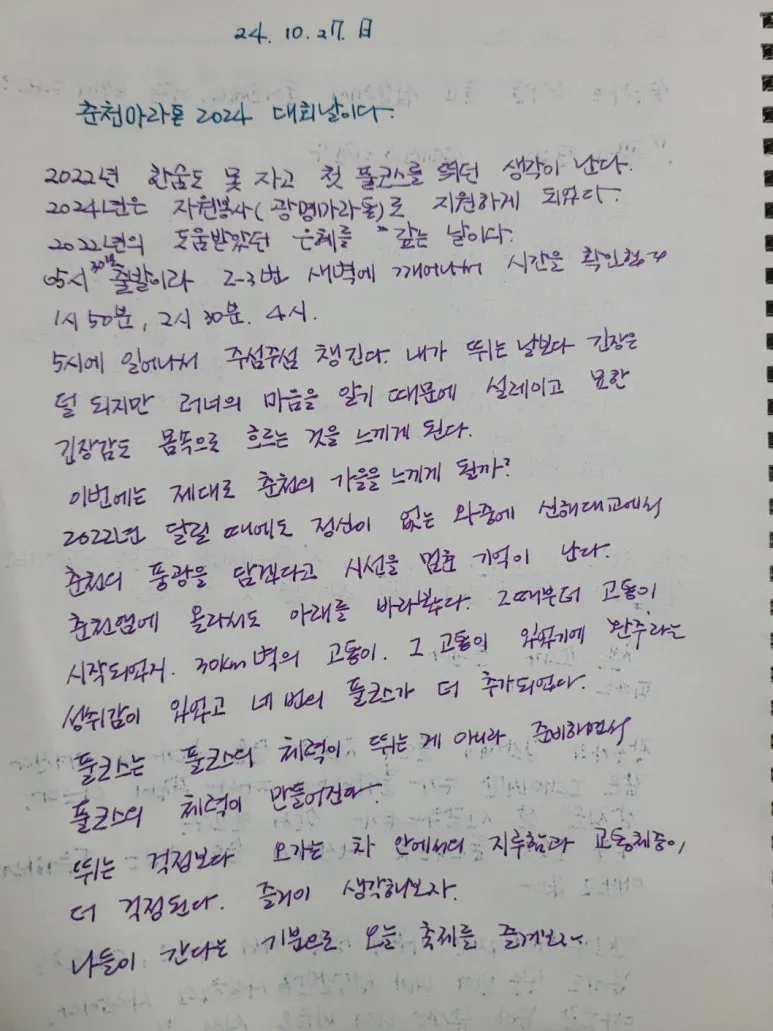 24. 10. 27. 日
춘천마라톤 2024 대회날이다.
2022년 한숨도 못 자고 첫 풀코스를 뛰던 생각이 난다.
2024년은 자원봉사(광명마라톤)로 지원하게 되었다.
2022년의 도움받았던 은혜를 갚는 날이다.
05시 30분 출발이라 2-3번 새벽에 깨어나서 시간을 확인했다
1시 50분, 2시 30분. 4시.
5시에 일어나서 주섬주섬 챙긴다. 내가 뛰는 날보다 긴장은
덜 되지만 러너의 마음을 알기 때문에 설레이고 묘한
긴장감도 몸속으로 흐르는 것을 느끼게 된다.
이번에는 제대로 춘천의 가을을 느끼게 될까?
2022년 달릴 때에도 정신이 없는 와중에 신매대교에서
춘천의 풍광을 담겠다고 시선을 멈춘 기억이 난다.
춘천댐에 올라서도 아래를 바라봤다. 그때부터 고통이
시작되었지. 30km 벽의 고통이. 그 고통이 있었기에 완주라는
성취감이 있었고 네 번의 풀코스가 더 추가되었다.
풀코스는 풀코스의 체력이 뛰는 게 아니라 준비하면서
풀코스의 체력이 만들어진다.
뛰는 걱정보다 오가는 차 안에서의 지루함과 교통체증이,
더 걱정된다. 즐거이 생각해보자.
나들이 간다는 기분으로 오늘 축제를 즐겨보자~